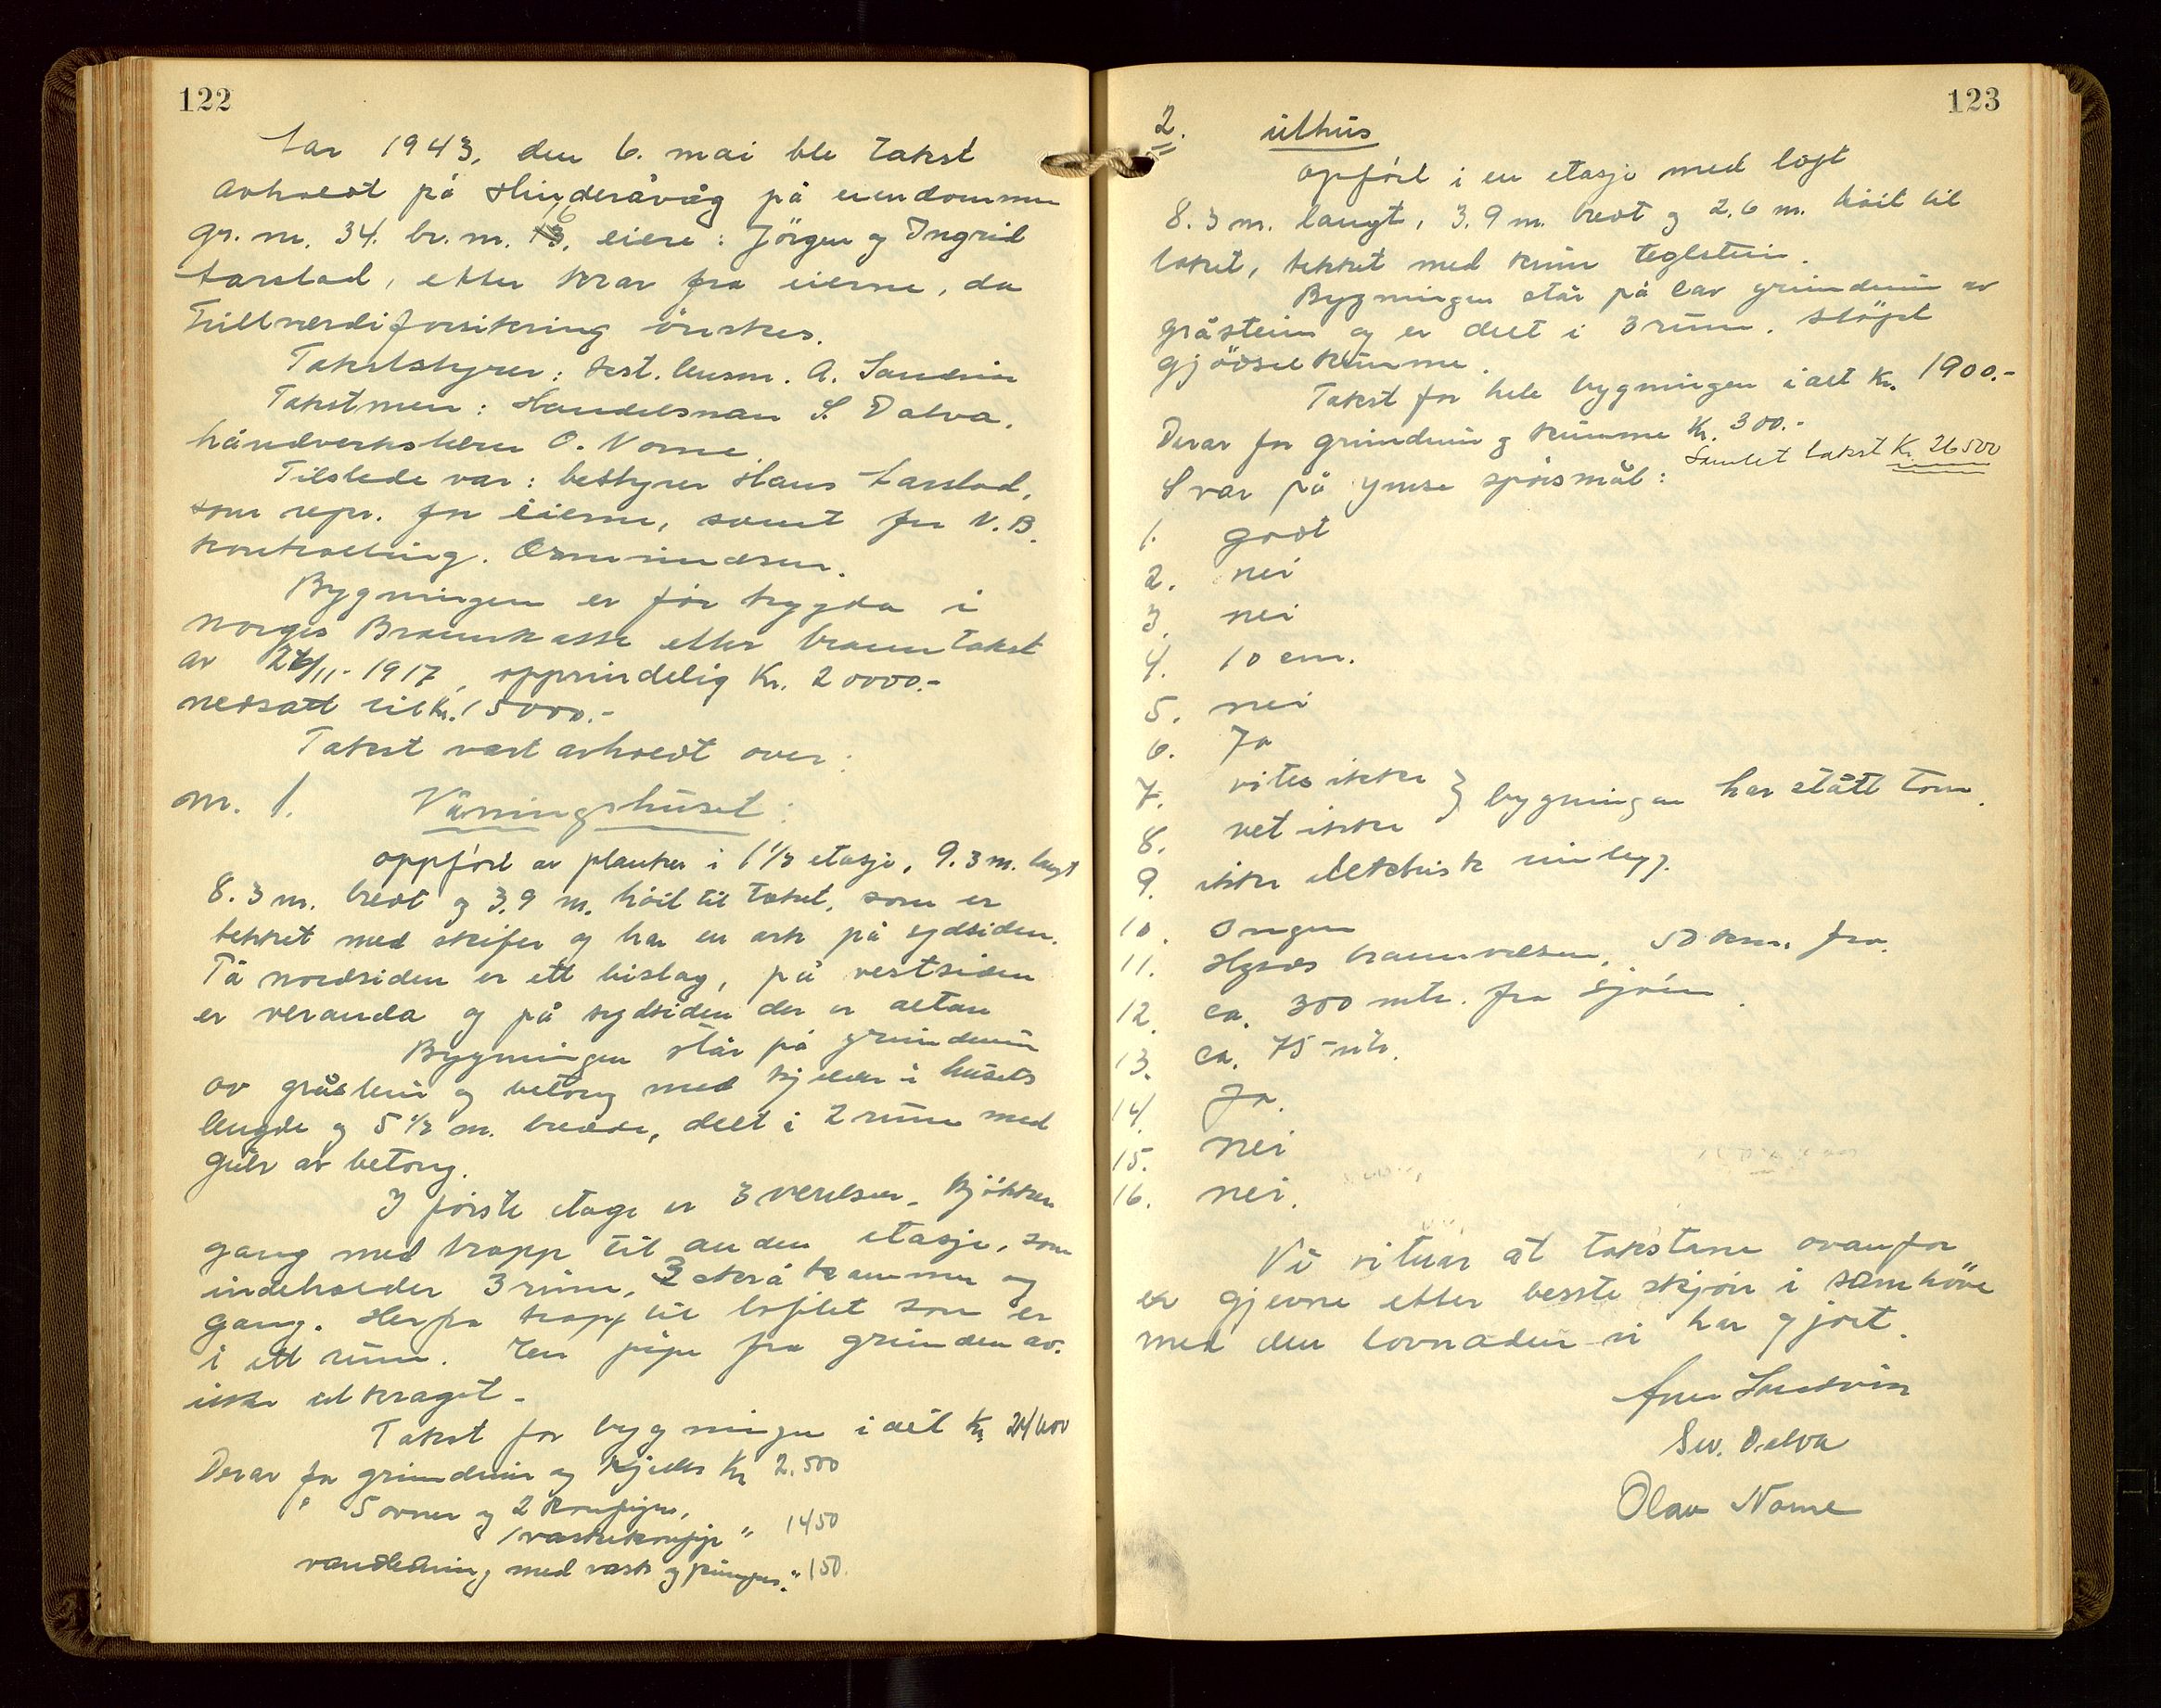 122
Aar 1943, den 6. mai ble takst
avholdt på Hinderåvåg på eiendommen
gr. nr. 34. br. nr. 6, eiere: Jörgen og Ingrid
Aarstad, etter krav fra eierne, da
Fullverdiforsikring önskes.
Takstskyrer: kst. lensm. A. Sandvin
Takstmen: Handelsman S. Dalva.
håndverkslærer O. Norne.
Tilstede var: bestyrer Hans Aarstad,
som repr. for eierne, samt for N. B.
kontrolling. Osmundsen.
Bygningen er för trygda i
Norges Brannkasse etter branntakst
av 26/11-1917, opprindelig Kr. 20000.-
nedsatt til Kr. 15000.-
Takst vart avholdt over:
nr. 1. Våningshuset:
oppfört av planker i 1 1/2 etasje, 9.3 m. langt
8.3 m. bredt og 3.9 m. höit til taket, som er
tekket med skifer og har en ark på sydsiden.
På nordsiden er ett bislag, på vestsiden
er veranda og på sydsiden der er altan
Bygningen står på grunnmur
av gråstein og betong med kjeller i husets
lengde og 5 1/2 m. bredde, delt i 2 rum med
gulv av betong.
I förste etage er 3 verelser, kjökken
gang med trapp til anden etasje, som
indeholder 3 rum, 2 skrå kammer og
gang. Herfra trapp til loftet som er
i ett rum. En pipe fra grunden av.
ikke utkraget.
Takst for bygningen i alt Kr. 24600
Derav for grundmur og kjeller Kr 2.500
" 5 ovner og 2 komfyrer,
1 vaskekomfyr " 1450
vandledning med vask og pumpe. " 150.
123
2. Uthus
opfört i en etasje med loft
8.3 m. langt, 3.9 m. bredt og 2.6 m. höit til
taket, tekket med krum teglstein.
Bygningen står på lav grundmur av
gråstein og er delt i 3 rum. Stöpt
gjödselkumme.
Takst for hele bygningen i alt Kr. 1900.-
Derav for grundmur og kumme Kr. 300.-
Samlet takst Kr. 26500
Svar på ymse spörsmål:
1. godt
2. nei
3. nei
4. 10 cm.
5. nei
6. Ja
7. vites ikke } bygningen har stått tom.
8. vet ikke
9. ikke elektrisk innlegg.
10. Ingen
11. Hgsds brannvesen. 50 km. fra.
12. ca. 300 mtr. fra sjöen.
13. ca. 75 mtr.
14. Ja.
15. nei
16. nei.
Vi vitnar at takstane ovanfor
er gjevne etter beste skjön i samhöve
med den lovnaden vi har gjort.
Arne Sandvin
Sev. Dalva
Olav Norne